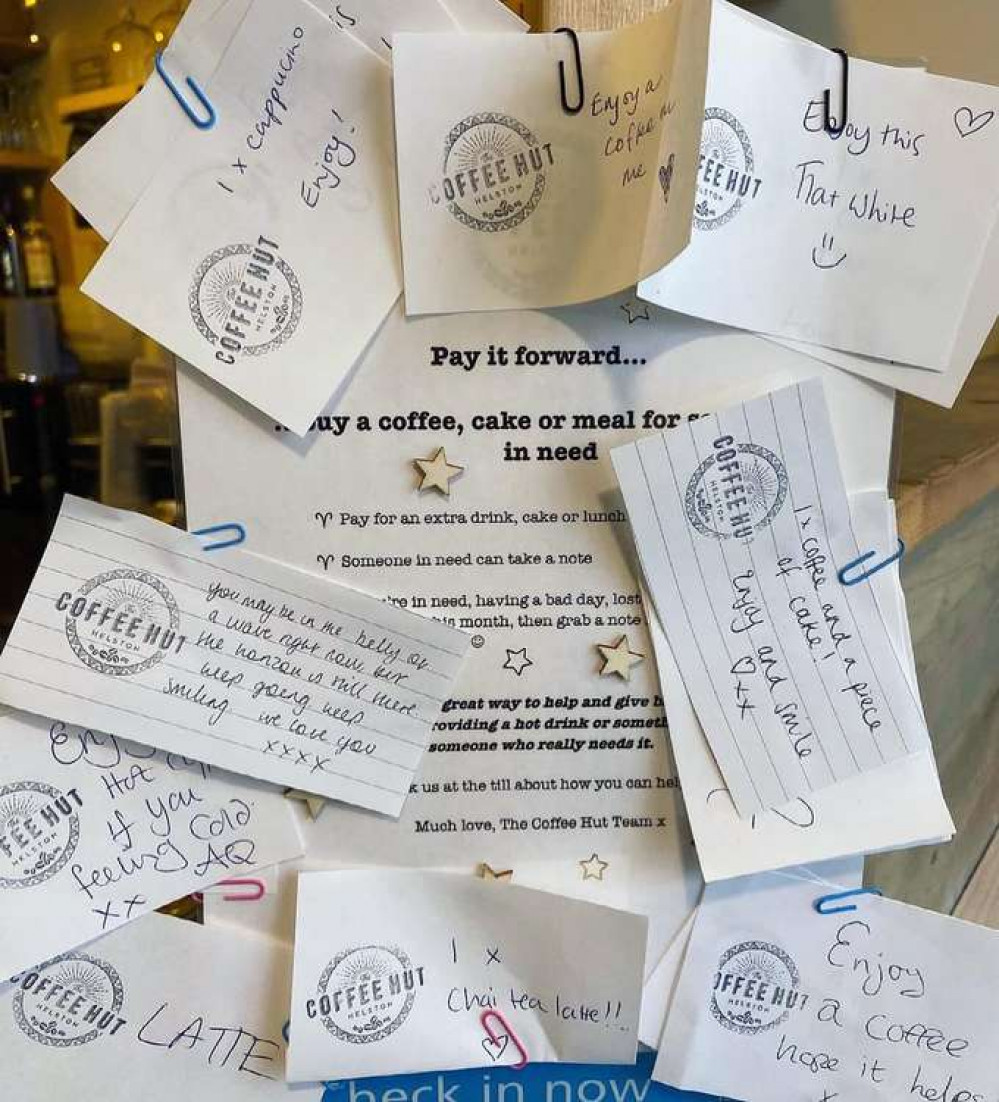 is
1 x cappucino
Enjoy!
The
COFFEE HUT
HELSTON
Enjoy a
Coffee on
me
The
COFFEE HUT
HELSTON
Enjoy this
Flat White
FEE HUT
Pay it forward...
uy a coffee, cake or meal for
in need
Pay for an extra drink, cake or lunch
Someone in need can take a note
're in need, having a bad day, lost
month, then grab a note
great way to help and give
roviding a hot drink or
someone who really needs it.
us at the till about how you can
Much love, The Coffee Hut Team x
COFFEE HUT
HELSTON
1 x coffee and a piece
of cake!
Enjoy and smile
xx
The
COFFEE HUT
HELSTON
you may be in the belly of
a wave right now, but
the horizon is still there
keep going keep
smiling we love you
xxxx
FEE HUT
HELSTON
Enjoy
Hot
If you
feeling Cold
xx
The
COFFEE HUT
HELSTON
LATTE
The
COFFEE HUT
HELSTON
1 x
Chai tea latte!!
OFFEE HUT
HELSTON
Enjoy
a coffee
hope it helps
x
heck in now